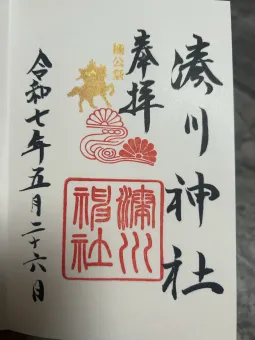 湊川神社
奉拝
楠公祭
湊川神社
令和七年五月二十六日